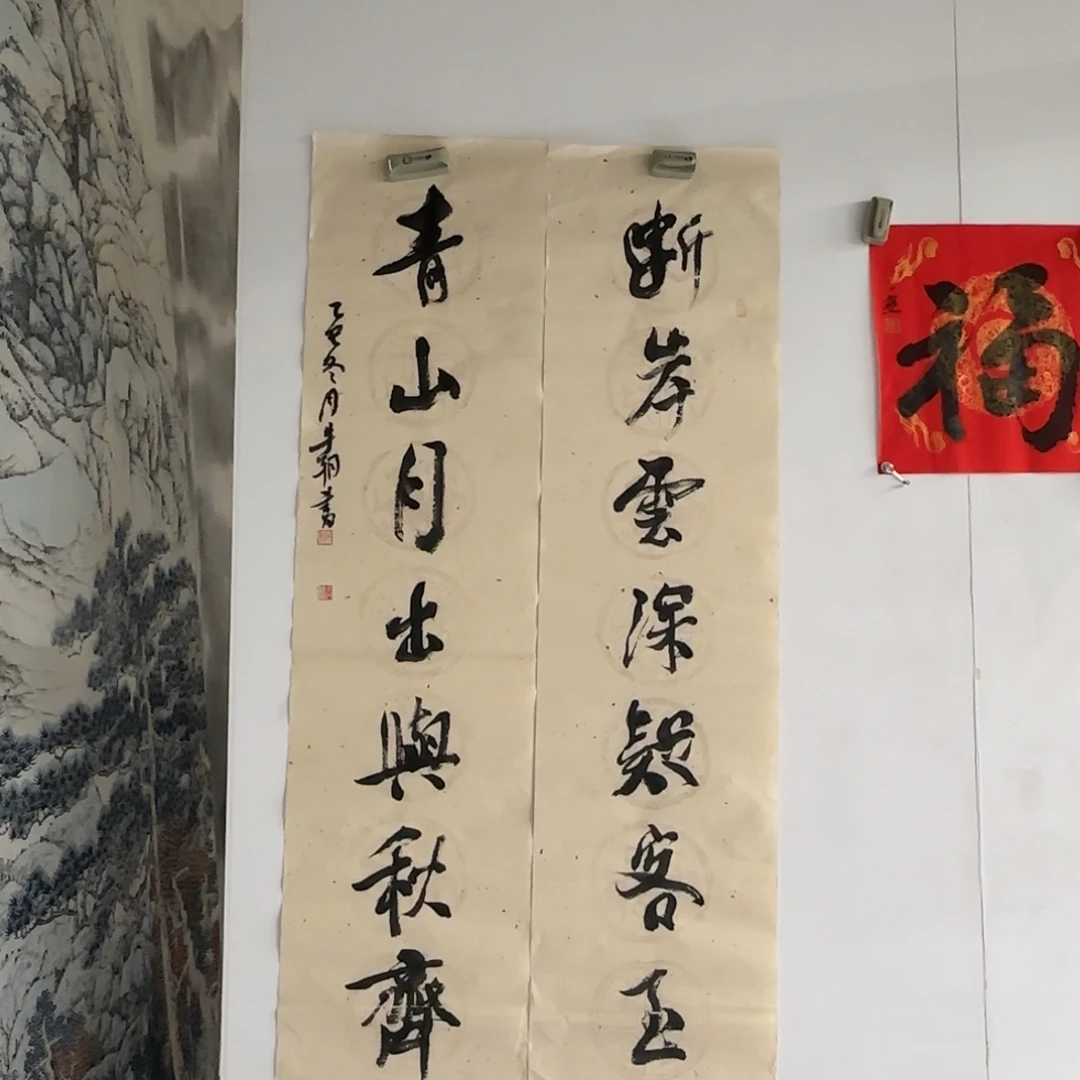 断岸雲深疑客至
青山月出與秋齊
乙巳冬月朝書
福